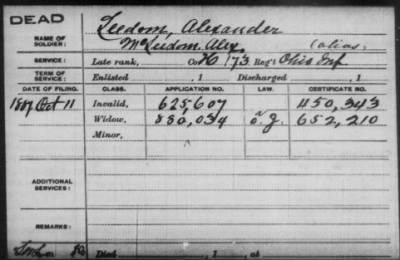 DEAD
NAME OF SOLDIER: Leedom, Alexander
McLeedom, Alex. (alias.
SERVICE: Late rank, Co H, 173 Reg't Ohio Inf
TERM OF SERVICE: Enlisted , 1 Discharged , 1
DATE OF FILING. CLASS. APPLICATION NO. LAW. CERTIFICATE NO.
1887 Oct 11 Invalid, 625,607 450,343
Widow, 850,034 652,210
Minor,
ADDITIONAL SERVICES:
REMARKS:
Died , 1 , at